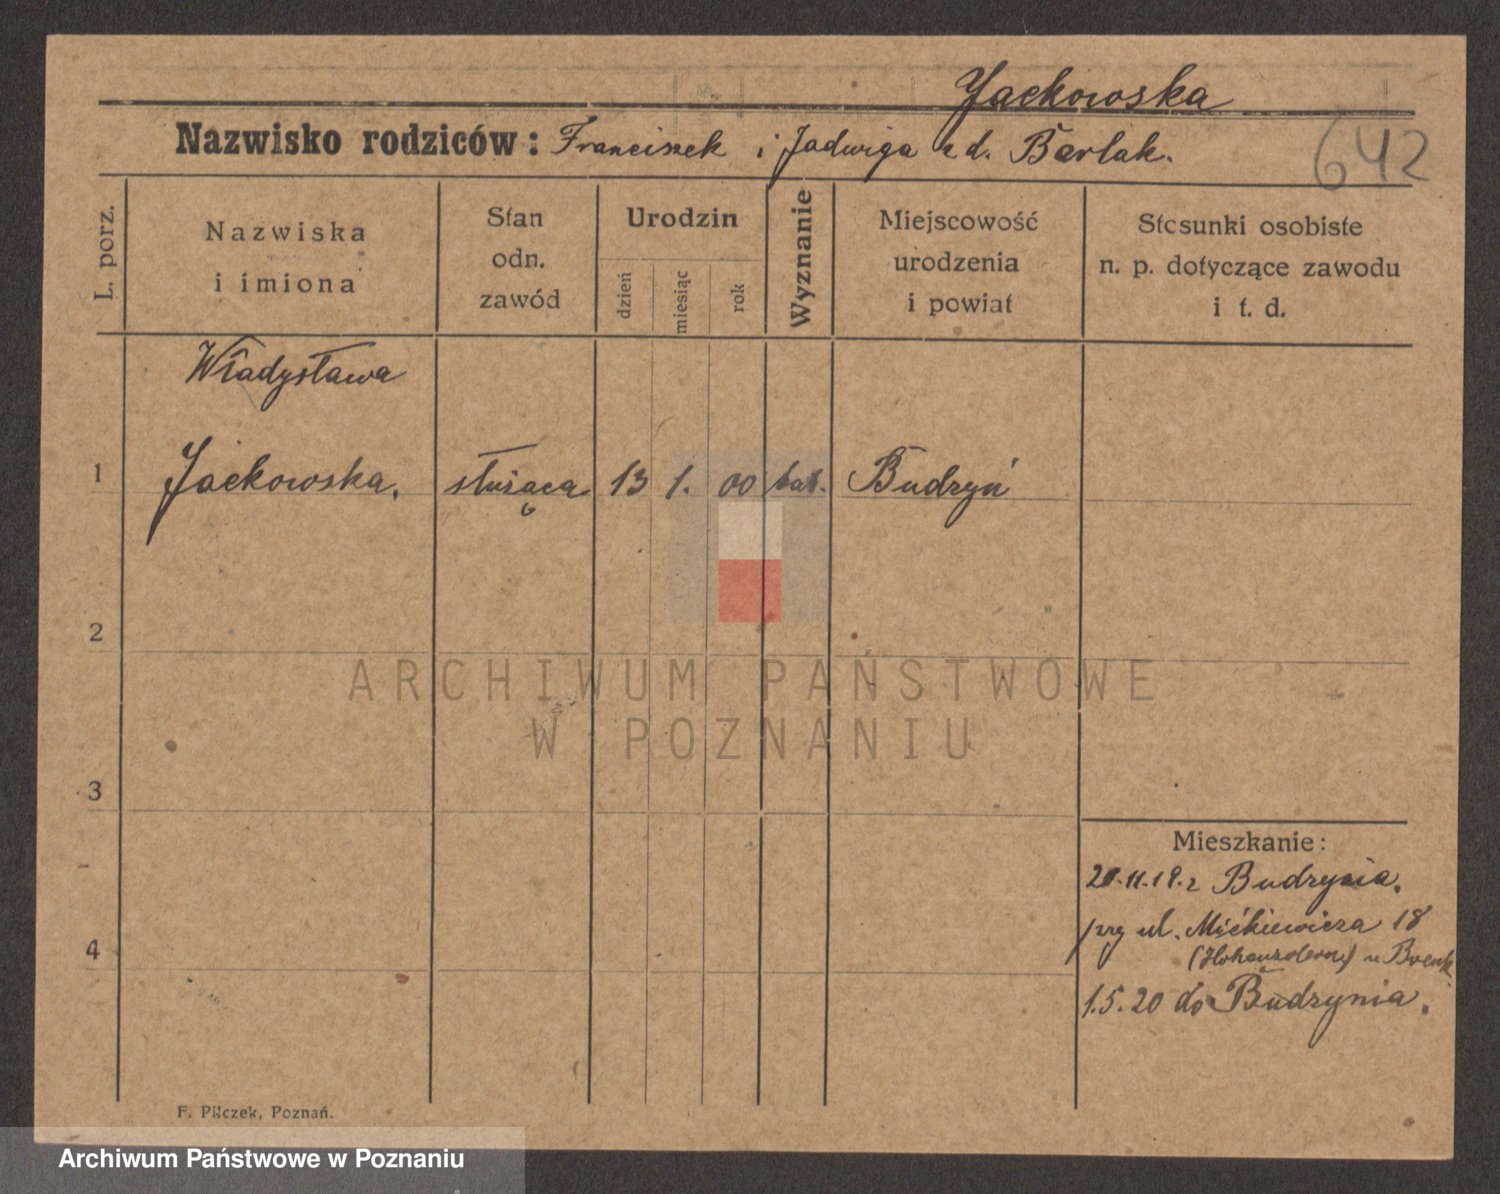 Jackowska
Nazwisko rodziców: Franciszek i Jadwiga z d. Bartak.
642
L. porz.
Nazwiska
i imiona
Stan
odn.
zawód
Urodzin
dzień
miesiąc
rok
Wyznanie
Miejscowość
urodzenia
i powiat
Stosunki osobiste
n. p. dotyczące zawodu
i t. d.
Władysława
1 Jackowska. służąca 13 1. 00 kat. Budzyń
2
ARCHIWUM PAŃSTWOWE
W POZNANIU
3
Mieszkanie:
11.18. z Budzynia.
przy ul. Mickiewicza 18
(Hohenzollern) u
4
1.5.20 do Budzynia.
F. Pilczek, Poznań.
Archiwum Państwowe w Poznaniu